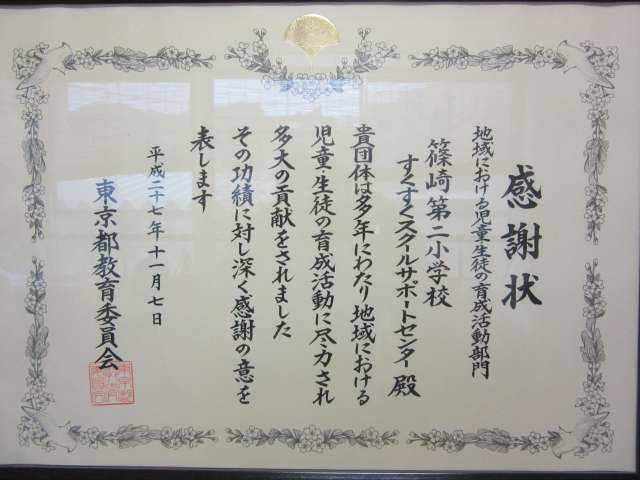 感謝状
地域における児童・生徒の育成活動部門
篠崎第二小学校
すくすくスクールサポートセンター 殿
貴団体は多年にわたり地域における
児童・生徒の育成活動に尽力され
多大の貢献をされました
その功績に対し深く感謝の意を
表します
平成二十七年十一月七日
東京都教育委員会